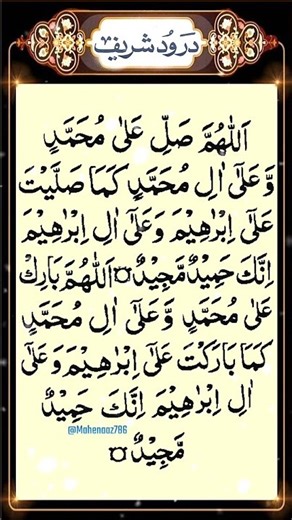 درود شریف
اَللّٰهُمَّ صَلِّ عَلٰی مُحَمَّدٍ
وَّعَلٰٓی اٰلِ مُحَمَّدٍ کَمَا صَلَّیْتَ
عَلٰٓی اِبْرٰهِیْمَ وَعَلٰٓی اٰلِ اِبْرٰهِیْمَ
اِنَّكَ حَمِیْدٌ مَّجِیْدٌ۝اَللّٰهُمَّ بَارِكْ
عَلٰی مُحَمَّدٍ وَّعَلٰٓی اٰلِ مُحَمَّدٍ
کَمَا بَارَکْتَ عَلٰٓی اِبْرٰهِیْمَ وَعَلٰٓی
اٰلِ اِبْرٰهِیْمَ اِنَّكَ حَمِیْدٌ
@Mahenaaz786
مَّجِیْدٌ۝